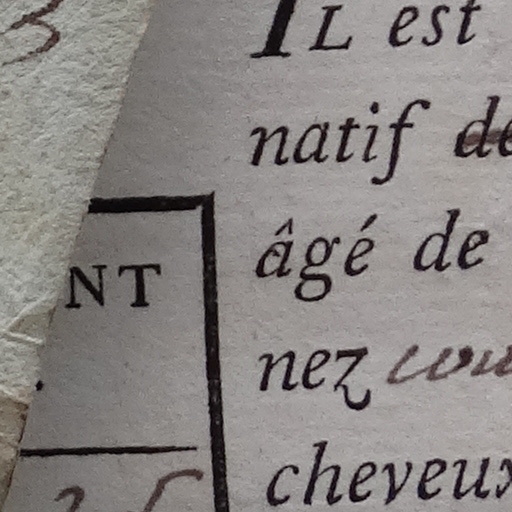 IL est
natif de
âgé de
nez
cheveux
NT